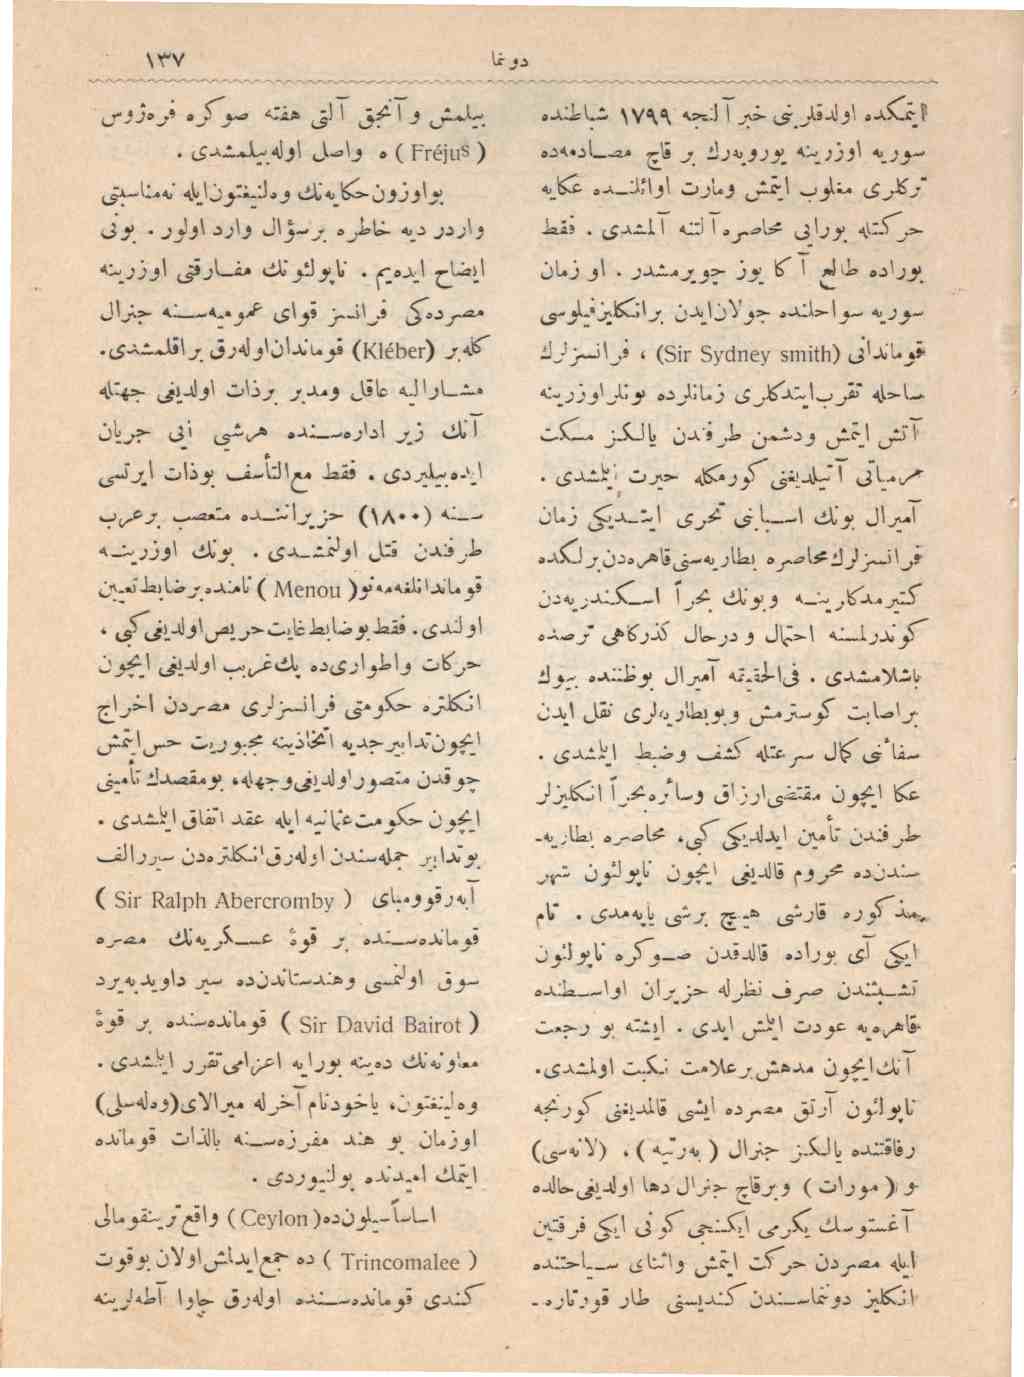 دونما
١٣٧
ایتمكده اولدقلرینی خبر آلنجه ١٧٩٩ شباطنده
سوریه اوزرینه یورویه‌رك بر قاچ مصــادمه‌ده
تركلری مغلوب ایتمش ومارت اوائلنــده عكایه
حركتله بورایی محاصره آلتنه آلمشدی . فقط
بوراده طالع آكا یوز چویرمشدر . او زمان
سوریه سواحلنده جولان ایدن برانكلیزفیلوسی
قوماندانی (Sir Sydney smith) ، فرانسزلرك
ساحله تقرب ایتدكلری زمانلرده بونلر اوزرینه
آتش ایتمش ودشمن طرفندن یالكـز مسكت
مرمیاتی آتیلدیغنی كورمكله حیرت ایلمشدی .
آمیرال بونك اســبابنی تحری ایتــدیكی زمان
فرانسزلرك محاصره بطاریه‌سنی قاهره‌دن برلكده
كتیرمدكلرینــه وبونك بحراً اســكندریه‌دن
كوندرلمسنه احتمال و درحال كذركاهی ترصده
باشلامشدی . فی‌الحقیقه آمیرال بوظننده بیوك
بر اصابت كوسترمش وبوبطاریه‌لری نقل ایدن
سفائنی كمال سرعتله كشف وضبط ایلمشدی .
عكا ایچون مقتضی ارزاق وسائره بحراً انكلیزلر
طرفندن تأمین ایدلدیكی كبی، محاصره بطاریه-
سندن‌ده محروم قالدیغی ایچون ناپولئون شهر
مذكوره قارشی هیــچ برشی یاپه‌مدی . تام
ایكی آی بوراده قالدقدن صــوكره ناپولئون
تشــبثندن صرف نظرله حزیران اواســطنده
قاهره‌یه عودت ایلمش ایدی . ایشته بو رجعت
آنك ایچون مدهش بر علامت نكبت اولمشدی.
ناپولئون آرتق مصرده ایشی قالمدیغنی كورنجه
رفاقتنده یالكـز جنرال (به‌رتیه) ، (لانه‌سی)
و (مورات) وبرقاچ جنرال دها اولدیغی حالده
آغستوسك یكرمی ایكنجی كونی ایكی فرقتین
ایله مصردن حركت ایتمش واثنای ســیاحتنده
انكلیز دونماســندن كندیسنی طار قورتاره-
بیلمش و آنجق آلتی هفته صوكره فره‌ژوس
(Fréjus) ه واصل اوله‌بیلمشدی .
بو اوزون حكایه‌نك وه‌لینغتون ایله نه‌مناسبتی
واردر دیه خاطره برسؤال وارد اولور . بونی
ایضاح ایده‌یم . ناپولئونك مفــارقتی اوزرینه
مصرده‌كی فرانسز قوای عمومیه‌ســنه جنرال
كله‌بر (Kléber) قوماندان اوله‌رق براقلمشدی.
مشــارالیه عاقل ومدبر برذات اولدیغی جهتله
آنك زیر اداره‌ســنده هرشیی ایی جریان
ایده‌بیلیردی . فقط مع‌التأسف بوذات ایرتسی
ســنه (١٨٠٠) حزیراننــده متعصب برعرب
طرفندن قتل اولنمشــدی . بونك اوزرینــه
قوماندانلغه‌مه‌نو (Menou) نامنده برضابط تعیین
اولندی. فقط بوضابط غایت حریص اولدیغی كبی ،
حركات واطواری‌ده پك‌غریب اولدیغی ایچون
انكلتره حكومتی فرانسزلری مصردن اخراج
ایچون تدابیر جدیه اتخاذینه مجبوریت حس ایتمش
چوقدن متصور اولدیغی وجهله، بومقصدك تأمینی
ایچون حكومت عثمانیه ایله عقد اتفاق ایلمشدی .
بوتدابیر جمله‌سندن اوله‌رق انكلتره‌دن سیررالف
آبه‌رقوومبای (Sir Ralph Abercromby)
قومانده‌ســنده بر قوهٔ عســكریه‌نك مصره
سوق اولنمسی وهندستاندن‌ده سیر داویدبه‌یرد
(Sir David Bairot) قومانده‌سنده بر قوهٔ
معاونه‌نك ده‌ینه بورایه اعزامی تقرر ایلمشدی .
وه‌لینغتون، یاخودنام آخرله میرالای (وه‌له‌سلی)
اوزمان بو هند مفرزه‌ســنه بالذات قومانده
ایتمك امیدنده بولنیوردی .
اساساًسیلون‌ده (Ceylon) واقع ترینقومالی
(Trincomalee) ده جمع ایدلمش اولان بوقوت
كندی قومانده‌ســنده اوله‌رق جاوا آطه‌لرینه